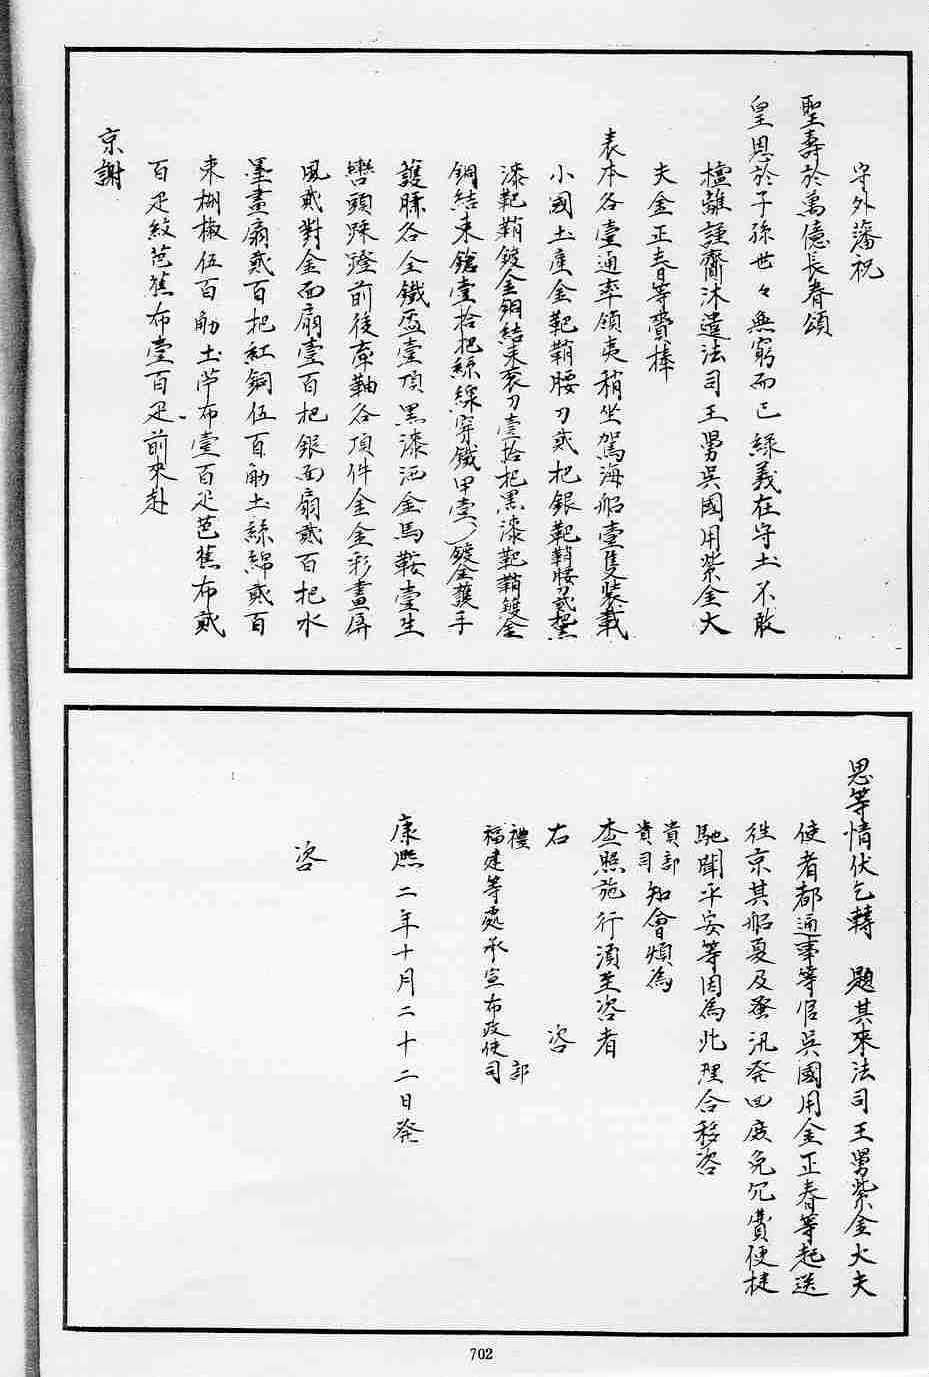 守外藩祝
聖壽於萬億長春頌
皇恩於子孫世々無窮而已緣義在守土不敢
擅離謹齋沐遣法司王舅吳國用紫金大
夫金正春等賫捧
表本各壹通率領夷稍坐駕海船壹隻裝載
小國土產金靶鞘腰刀貳把銀靶鞘腰刀貳把黑
漆靶鞘鍍金銅結束袞刀壹拾把黑漆靶鞘鍍金
銅結束鎗壹拾把絲綵穿鐵甲壹鍍金護手
護膝各全鐵盔壹頂黑漆洒金馬鞍壹生
轡頭踩蹬前後牽鞦各頂件全金彩畫屏
風貳對金面扇壹百把銀面扇貳百把水
墨畫扇貳百把紅銅伍百觔土絲綿貳百
束椒伍百觔土苧布壹百疋芭蕉布貳
百疋紋芭蕉布壹百疋前來赴
京謝
恩等情伏乞轉 題其來法司王舅紫金大夫
使者都通事等官吳國用金正春等起送
徃京其船夏及蚤汛發回庶免冗費便捷
馳聞平安等因為此理合移咨
貴部
貴司知會煩為
查照施行湏至咨者
右 咨
禮 部
福建等處承宣布政使司
康熙二年十月二十二日發
咨
702